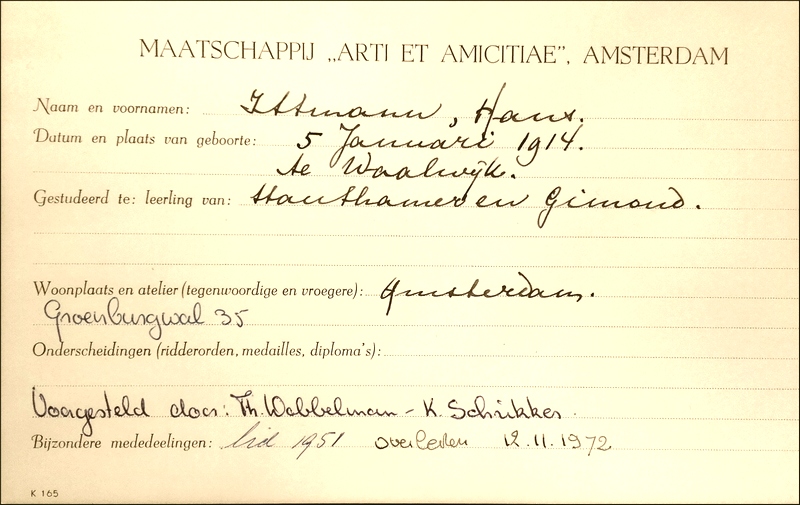 MAATSCHAPPIJ „ARTI ET AMICITIAE”, AMSTERDAM
Naam en voornamen: Ittmann, Hans.
Datum en plaats van geboorte: 5 Januari 1914.
te Waalwijk.
Gestudeerd te: leerling van: Stauthamer en Gimond.
Woonplaats en atelier (tegenwoordige en vroegere): Amsterdam.
Groenburgwal 35
Onderscheidingen (ridderorden, medailles, diploma's):
Voorgesteld door: Th. Wobbelman - K. Schrikker
Bijzondere mededeelingen: lid 1951 overleden 12.11.1972
K 165